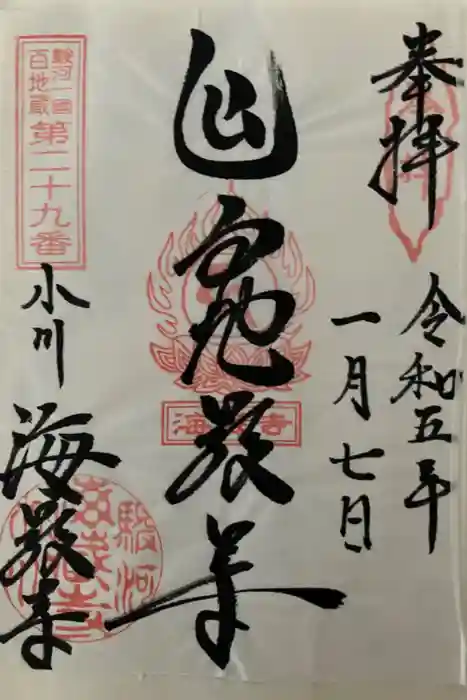 奉拝
令和五年
一月七日
延命地蔵尊
海蔵寺
駿河一国
百地蔵
第二十九番
小川
海蔵寺
駿河